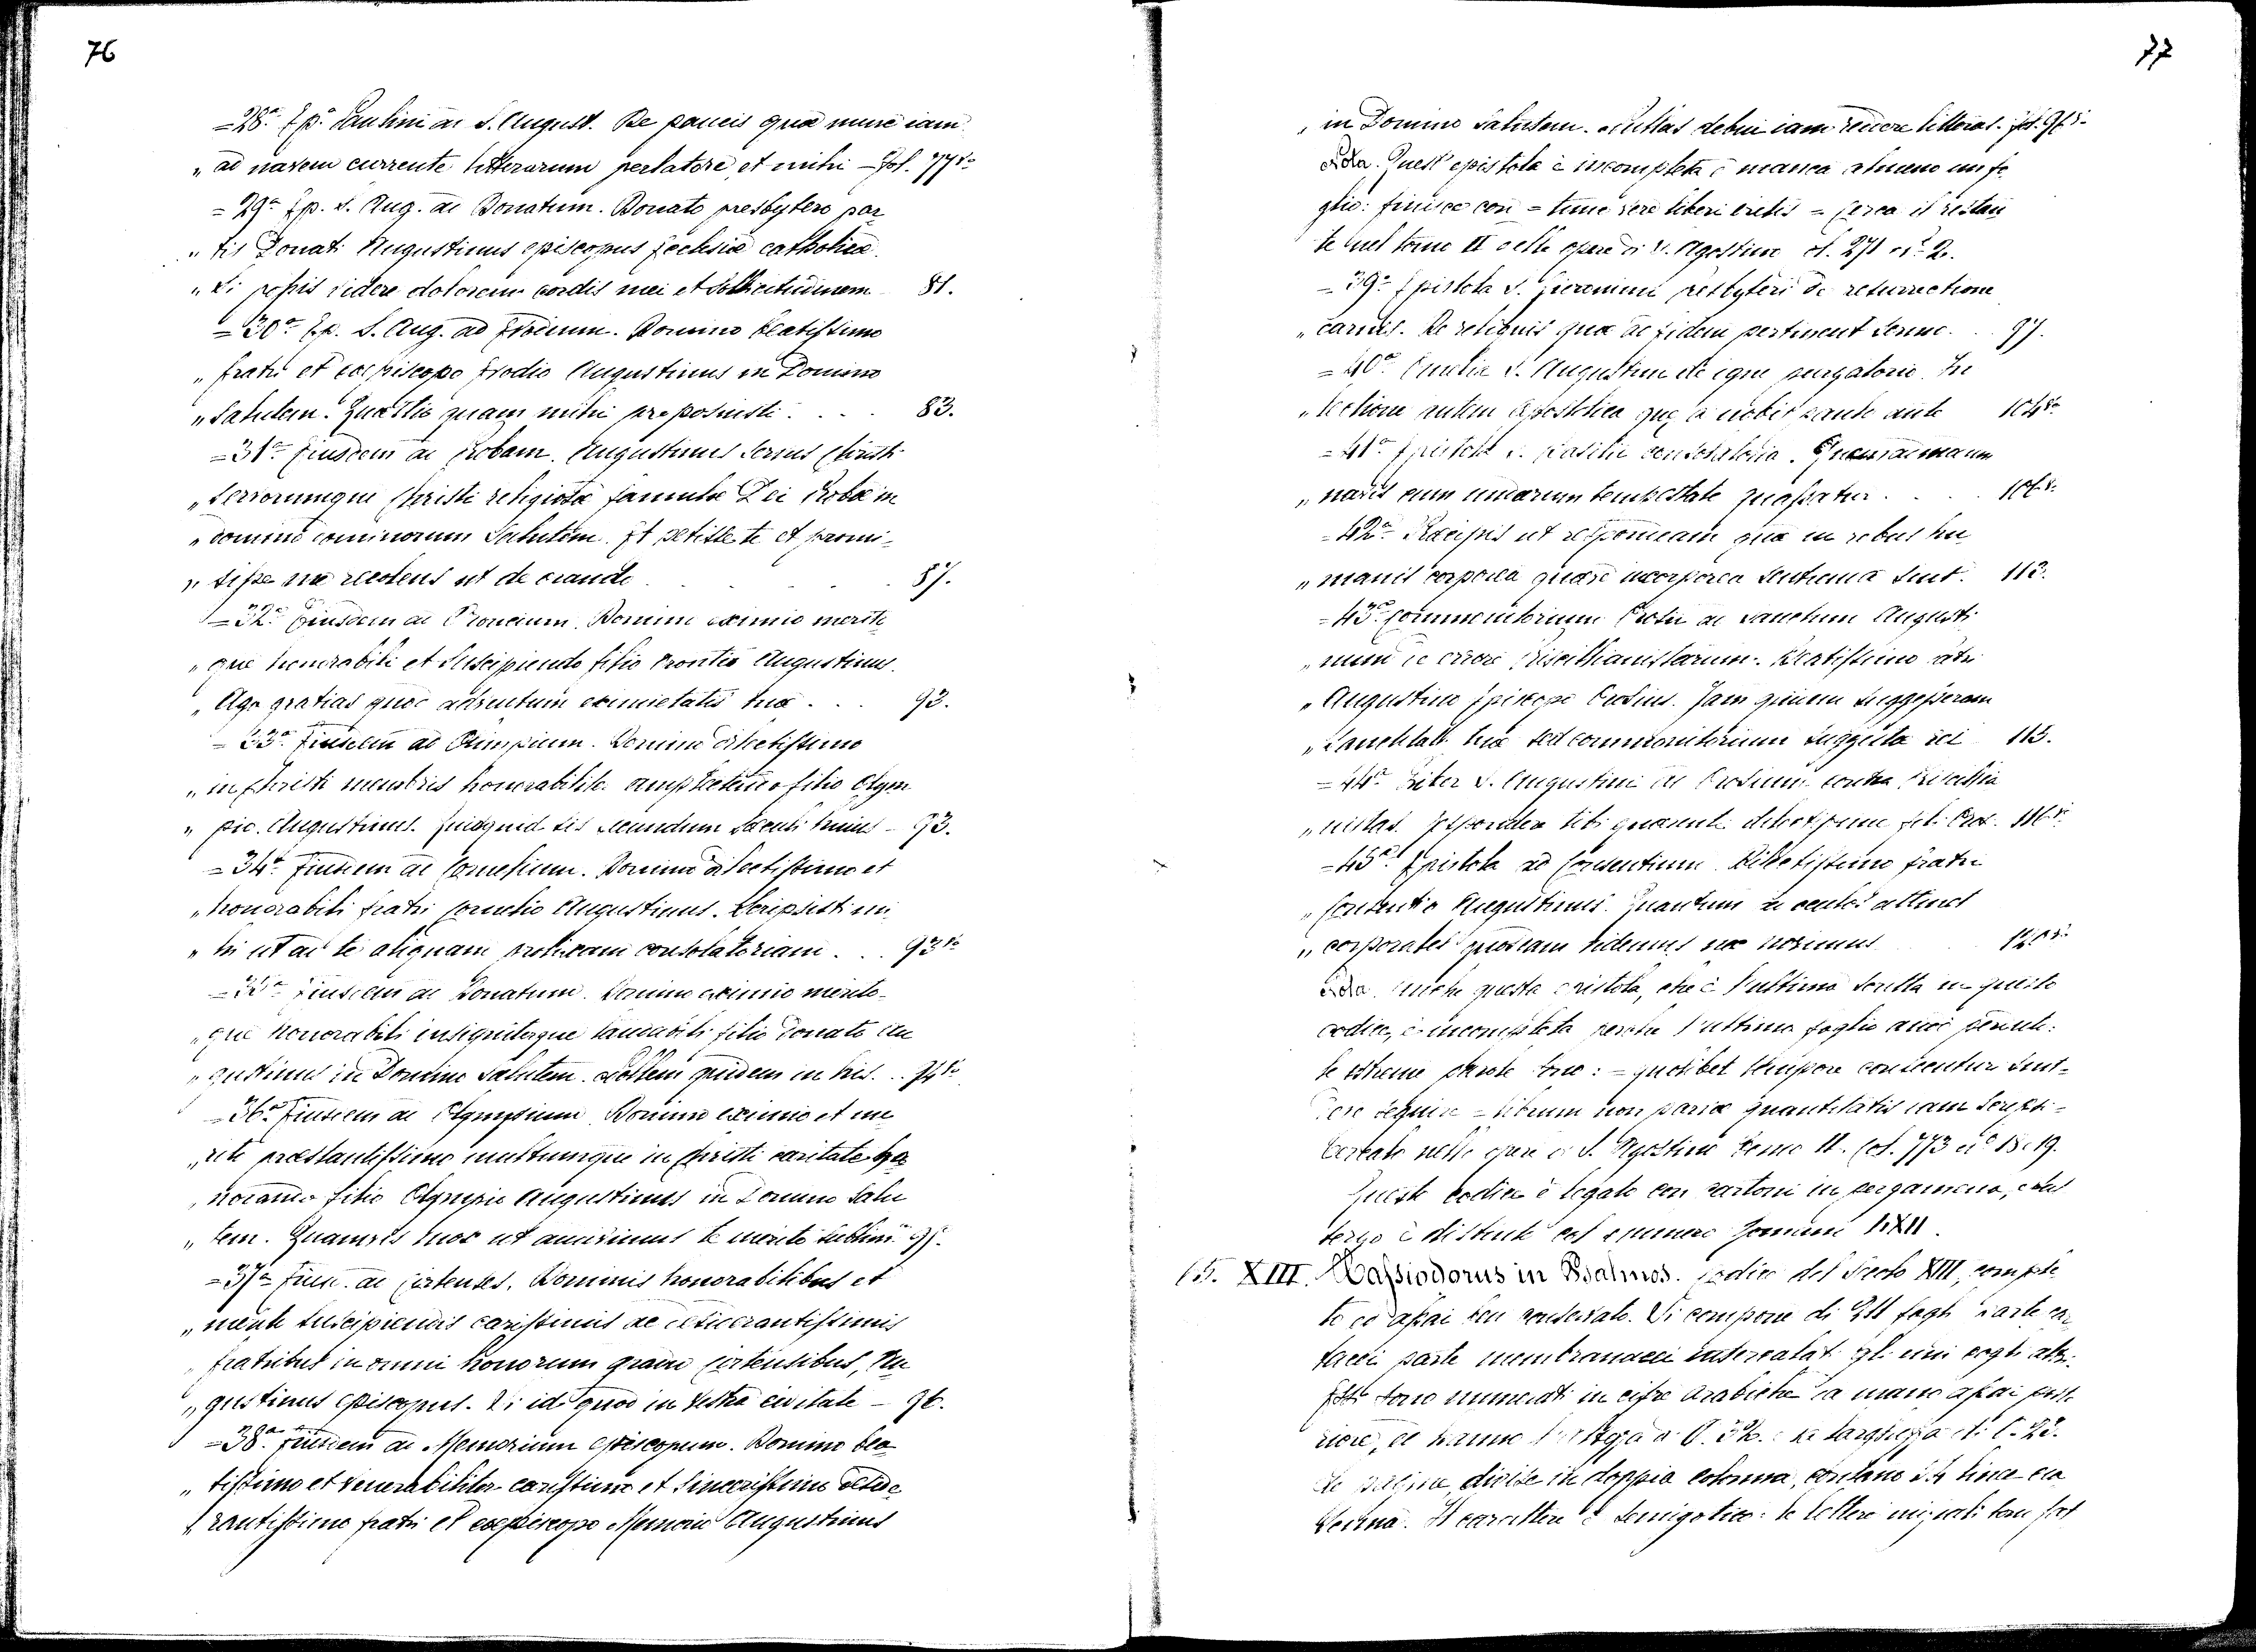 76
=28.ª Ep.ª Paulini ad S. August. De paucis quæ nunc iam
„ ad navem currente litterarum perlatore, et mihi – fol. 77 v.º
= 29ª Ep. S. Aug. ad Donatum. Donato presbytero par
„ tis Donati Augustinus episcopus Ecclesiæ catholicæ.
„ Si posses videre dolorem cordis mei et sollicitudinem 81.
= 30ª Ep. S. Aug. ad Evodium. Domino beatissimo
„ fratri et coepiscopo Evodio Augustinus in Domino
„ Salutem. Quæstio quam mihi proposuisti . . . 83.
=31ª Eiusdem ad Probam. Augustinus servus Christi
„ servorumque Christi religiosæ famulæ Dei Probæ in
„ domino dominorum Salutem. Et petisse te et promi-
„ sisse me recolens ut de orando . . . 87.
=32ª Eiusdem ad Prontium. Domino eximio merito
„ que honorabili et suscipiendo filio Prontio Augustinus.
„ Ago gratias quod adventum eximietatis tuæ . . . 93.
= 33ª Eiusdem ad Olimpium. Domino dilectissimo
„ in Christi membris honorabiliter amplectendo filio Olym
„ pio. Augustinus. Quidquid sis secundum sæculi huius – 93.
= 34ª Eiusdem ad Cornelium. Domino dilectissimo et
„ honorabili fratri Cornelio Augustinus. Scripsisti mi
„ hi ut ad te aliquam prolixam consolatoriam . . 93 v.º
= 35ª Eiusdem ad Donatum. Domino eximio merito-
„ que honorabili insigniterque laudabili filio Donato Au
„ gustinus in Domino salutem. Nollem quidem in his. . . 94 v.º
=36ª Eiusdem ad Olympium. Domino eximio et me
„ rito præstantissimo multumque in Christi caritate ho
„ norando filio Olympio Augustinus in Domino Salu
„ tem. Quamvis mox ut audivimus te merito sublim. 95.
=37ª Eiusd. ad Cirtenses. Dominis honorabilibus et
„ merito suscipiendis carissimis ac desiderantissimis
„ fratribus in omni honorum gradu Cirtensibus, Au
„ gustinus episcopus. Si id quod in vestra civitate – 96.
=38ª Eiusdem ad Memorium episcopum. Domino bea
„ tissimo et venerabiliter carissimo et sincerissime deside
„ rantissimo fratri et coepiscopo Memorio Augustinus
77
„ in Domino Salutem. Nullas debui iam reddere litteras. fol. 96 v.
Nota. Quest'epistola è incompleta e manca almeno un fo
glio: finisce con = tunc vere liberi eritis = Cerca il restan
te nel tomo II delle opere di S. Agostino col. 271 nº 2.
= 39ª Epistola S. Hieronimi presbyteri de resurrectione
„ carnis. De reliquis quæ ad fidem pertinent sermo. . . 97.
= 40ª Omelia S. Augustini de igne purgatorio. In
„ lectione autem apostolica quæ a nobis paulo ante 104 v.º
= 41ª Epistola S. Basilii consolatoria. Quemadmodum
„ navis cum undarum tempestate quassatur . . . 106 v.
= 42ª Præcipis ut respondeam quæ in rebus hu
„ manis corporea quæve incorporea sentienda sint. 113.
= 43ª Commonitorium Orosii ad sanctum Augusti
„ num de errore Priscillianistarum. Beatissimo patri
„ Augustino Episcopo Orosius. Jam quidem suggesseram
„ Sanctitati tuæ sed commonitorium suggestæ rei 115.
= 44ª Liber S. Augustini ad Orosium contra Priscillia
„ nistas. Respondere tibi quærenti dilectissime fili Oros. 116 v.
=45ª Epistola ad Consentium. Dilectissimo fratri
„ Consentio Augustinus. Quantum ad oculos attinet
„ corporales quosdam videmus nec novimus 120 v.
Nota. Anche questa epistola, che è l'ultima scritta in questo
codice, è incompleta perchè l'ultimo foglio andò perduto:
le estreme parole sono: = quolibet tempore contendentur sunt =
deve seguire = librum non parvæ quantitatis iam scripti =
Cercato nelle opere di S. Agostino tomo II. col. 773 nº 18 e 19.
Questo codice è legato con cartoni in pergamena, e sul
tergo è distinto col numero Romano LXXII.
65. XIII. Cassiodorus in Psalmos. Codice del secolo XIII, comple
to ed assai ben conservato. Si compone di 211 fogli parte car
tacei parte membranacei intercalati gli uni cogli altri.
Essi sono numerati in cifre Arabiche da mano assai poste
riore, ed hanno l'altezza di C. 32.: la larghezza di C. 23.
Le pagine, divise in doppia colonna, contano 34 linee cia
scuna. Il carattere è semigotico: le lettere iniziali sono fat